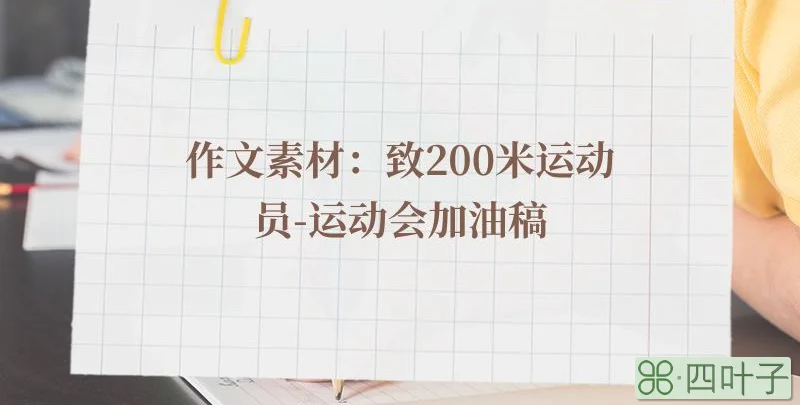 作文素材：致200米运动
员-运动会加油稿
四叶子